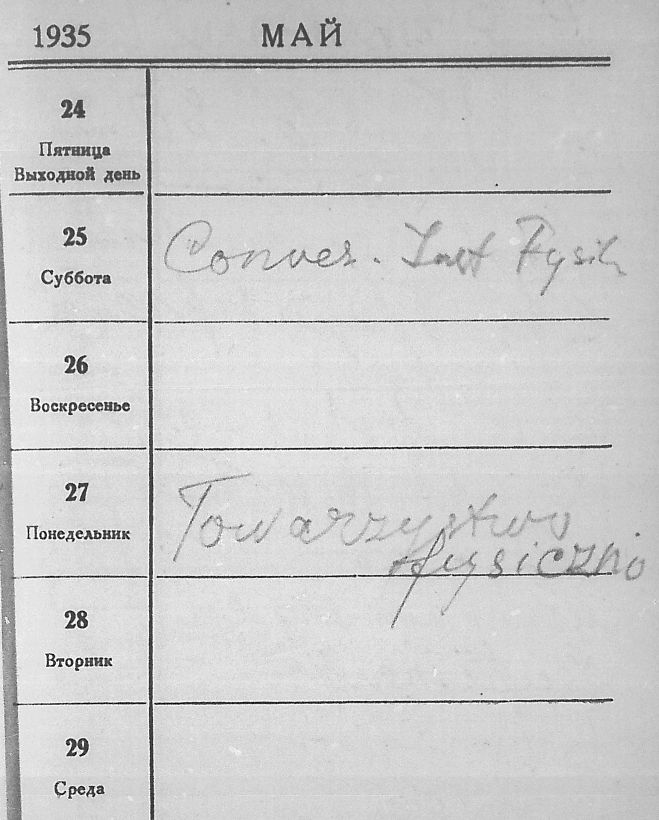 1935 МАЙ
24
Пятница
Выходной день
25
Суббота
Conver. Inst Fysik
26
Воскресенье
27
Понедельник
Towarzystwo
fysiczno
28
Вторник
29
Среда